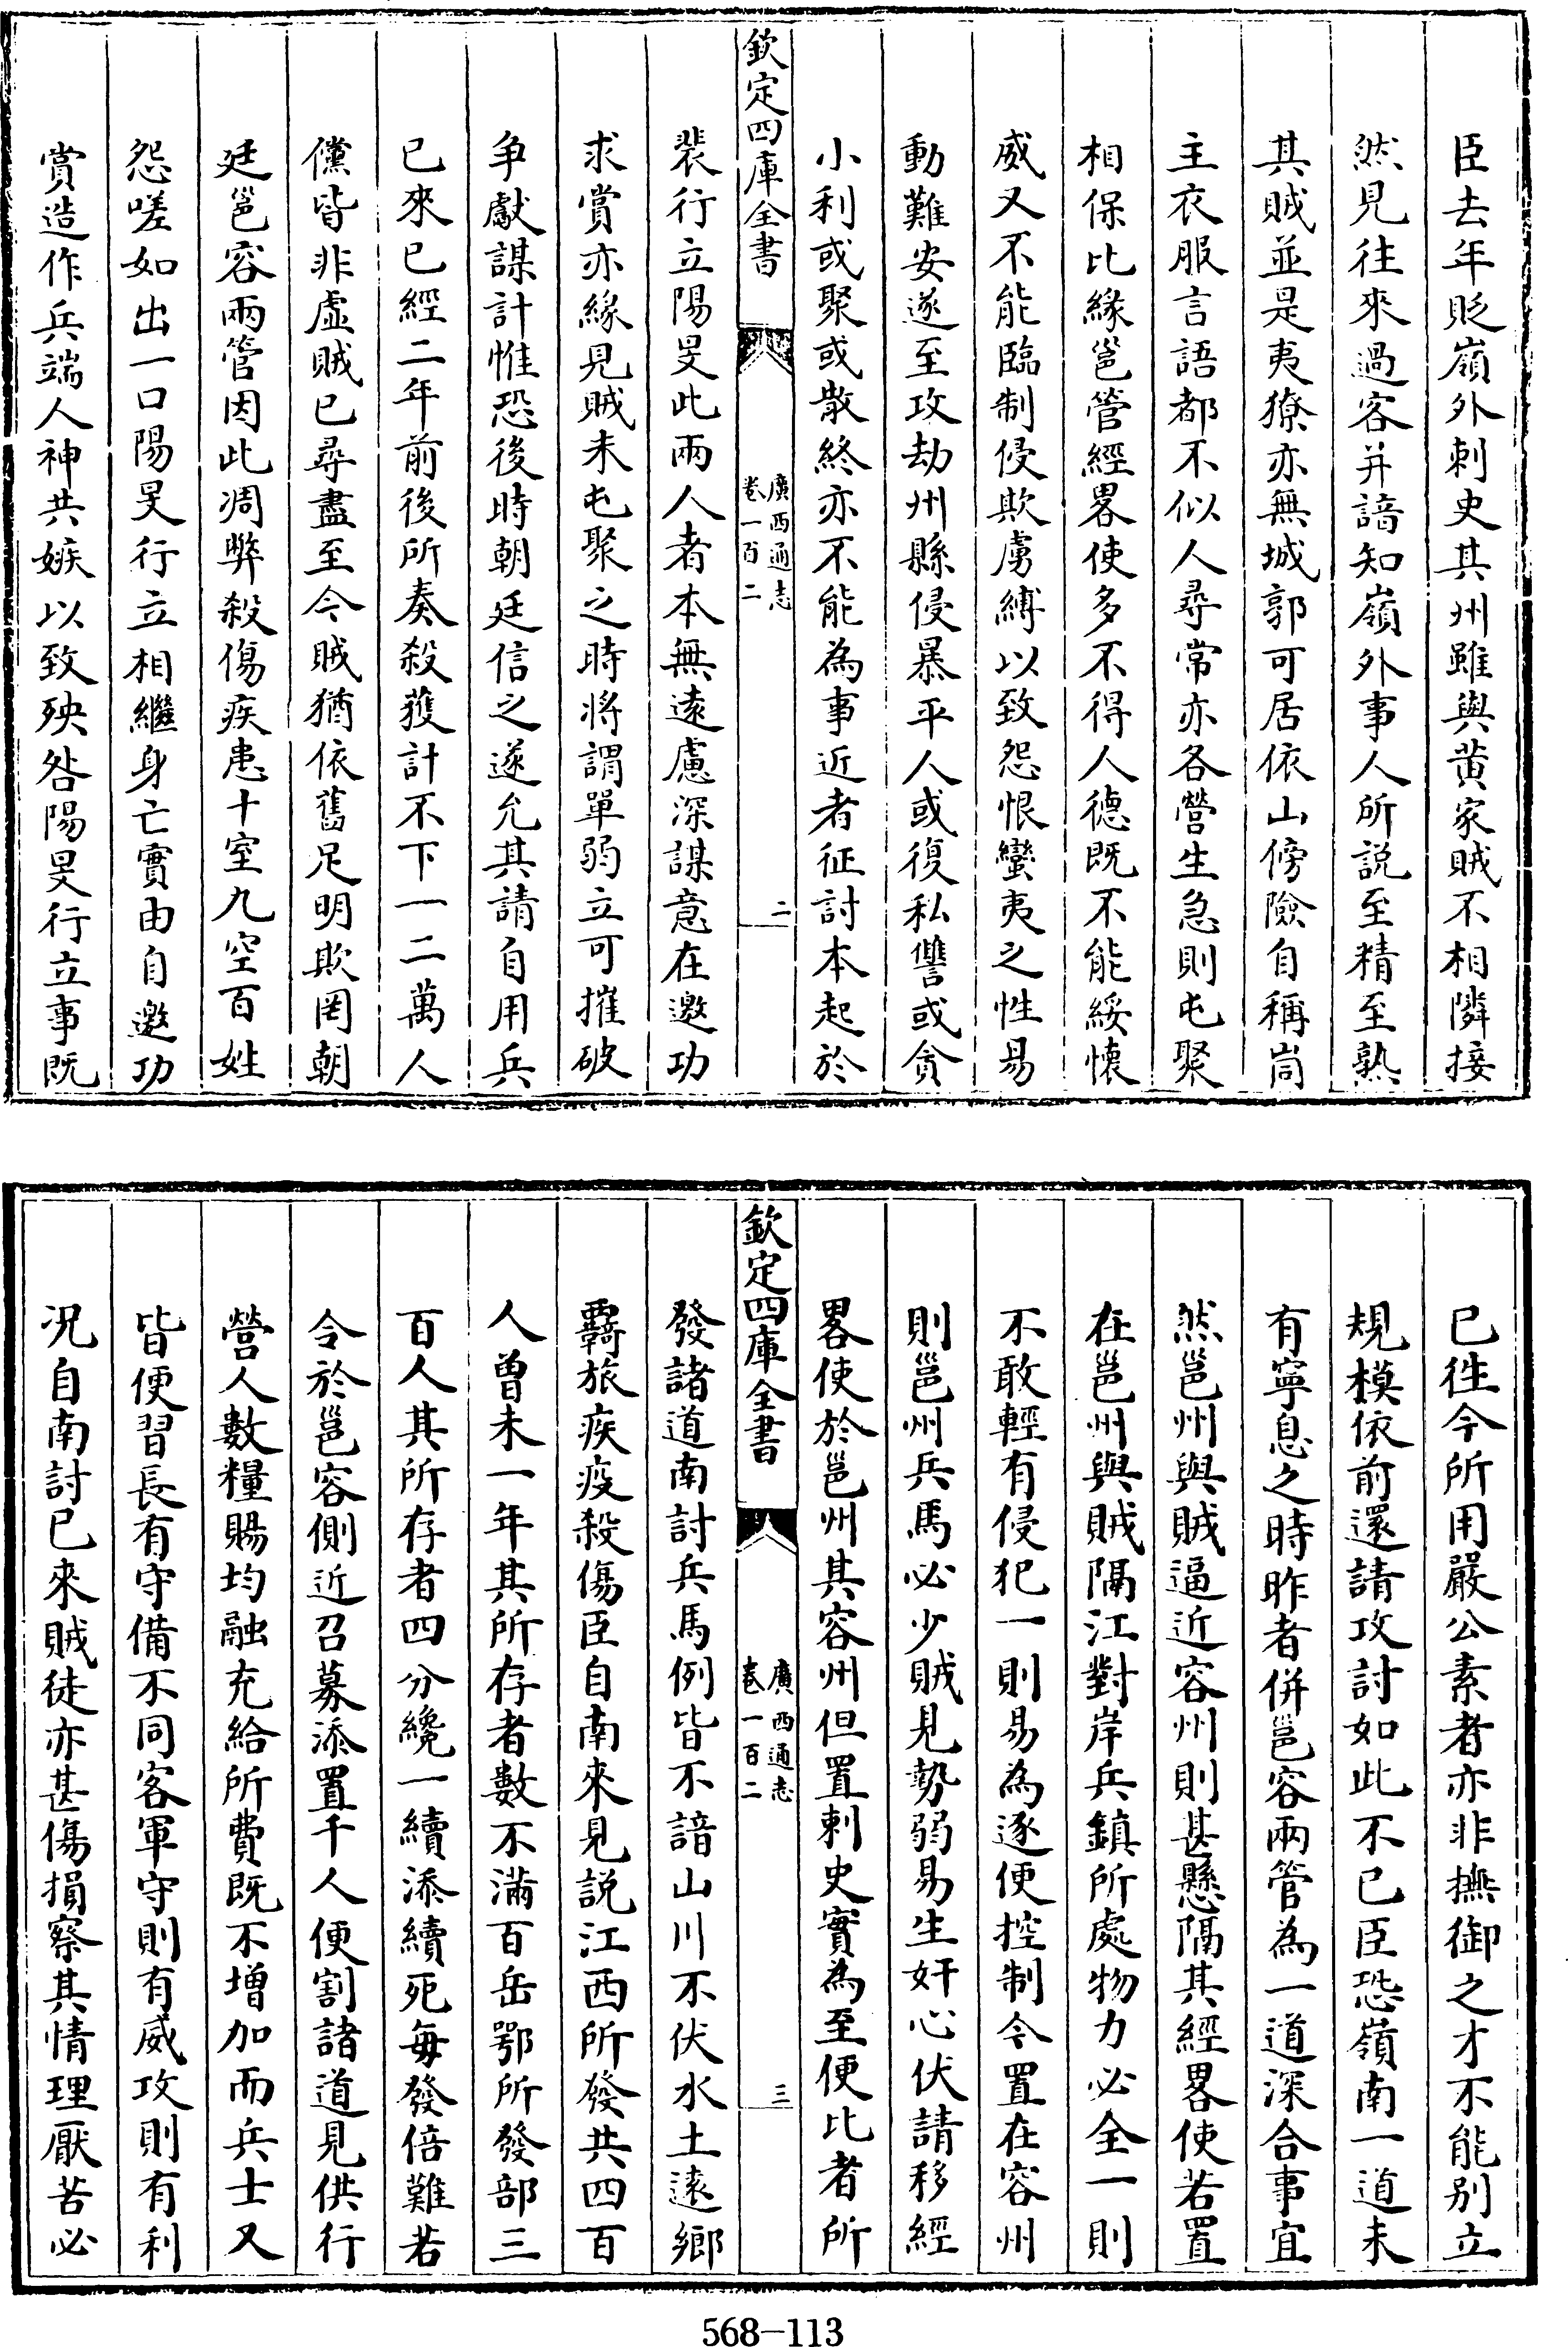 臣去年貶嶺外刺史其州雖與黄家賊不相隣接
然見往來過客并諳知嶺外事人所説至精至熟
其賊並是夷獠亦無城郭可居依山傍險自稱峝
主衣服言語都不似人尋常亦各營生急則屯聚
相保比緣邕管經畧使多不得人德既不能綏懷
威又不能臨制侵欺虜縛以致怨恨蠻夷之性易
動難安遂至攻劫州縣侵暴平人或復私讐或貪
小利或聚或散終亦不能為事近者征討本起於
欽定四庫全書
廣西通志
卷一百二
二
裴行立陽旻此兩人者本無遠慮深謀意在邀功
求賞亦緣見賊未屯聚之時將謂單弱立可摧破
争獻謀計惟恐後時朝廷信之遂允其請自用兵
已來已經二年前後所奏殺獲計不下一二萬人
儻皆非虚賊已尋盡至今賊猶依舊足明欺罔朝
廷邕容兩管因此凋弊殺傷疾患十室九空百姓
怨嗟如出一口陽旻行立相繼身亡實由自邀功
賞造作兵端人神共嫉以致殃咎陽旻行立事既
已徃今所用嚴公素者亦非撫御之才不能别立
規模依前還請攻討如此不已臣恐嶺南一道未
有寧息之時昨者併邕容兩管為一道深合事宜
然邕州與賊逼近容州則甚懸隔其經畧使若置
在邕州與賊隔江對岸兵鎮所處物力必全一則
不敢輕有侵犯一則易為逐便控制今置在容州
則邕州兵馬必少賊見勢弱易生奸心伏請移經
畧使於邕州其容州但置剌史實為至便比者所
欽定四庫全書
廣西通志
卷一百二
三
發諸道南討兵馬例皆不諳山川不伏水土遠鄉
羈旅疾疫殺傷臣自南來見説江西所發共四百
人曽未一年其所存者數不滿百岳鄂所發部三
百人其所存者四分纔一續添續死每發倍難若
令於邕容側近召募添置千人便割諸道見供行
營人數糧賜均融充給所費既不增加而兵士又
皆便習長有守備不同客軍守則有威攻則有利
況自南討已來賊徒亦甚傷損察其情理厭苦必
568-113